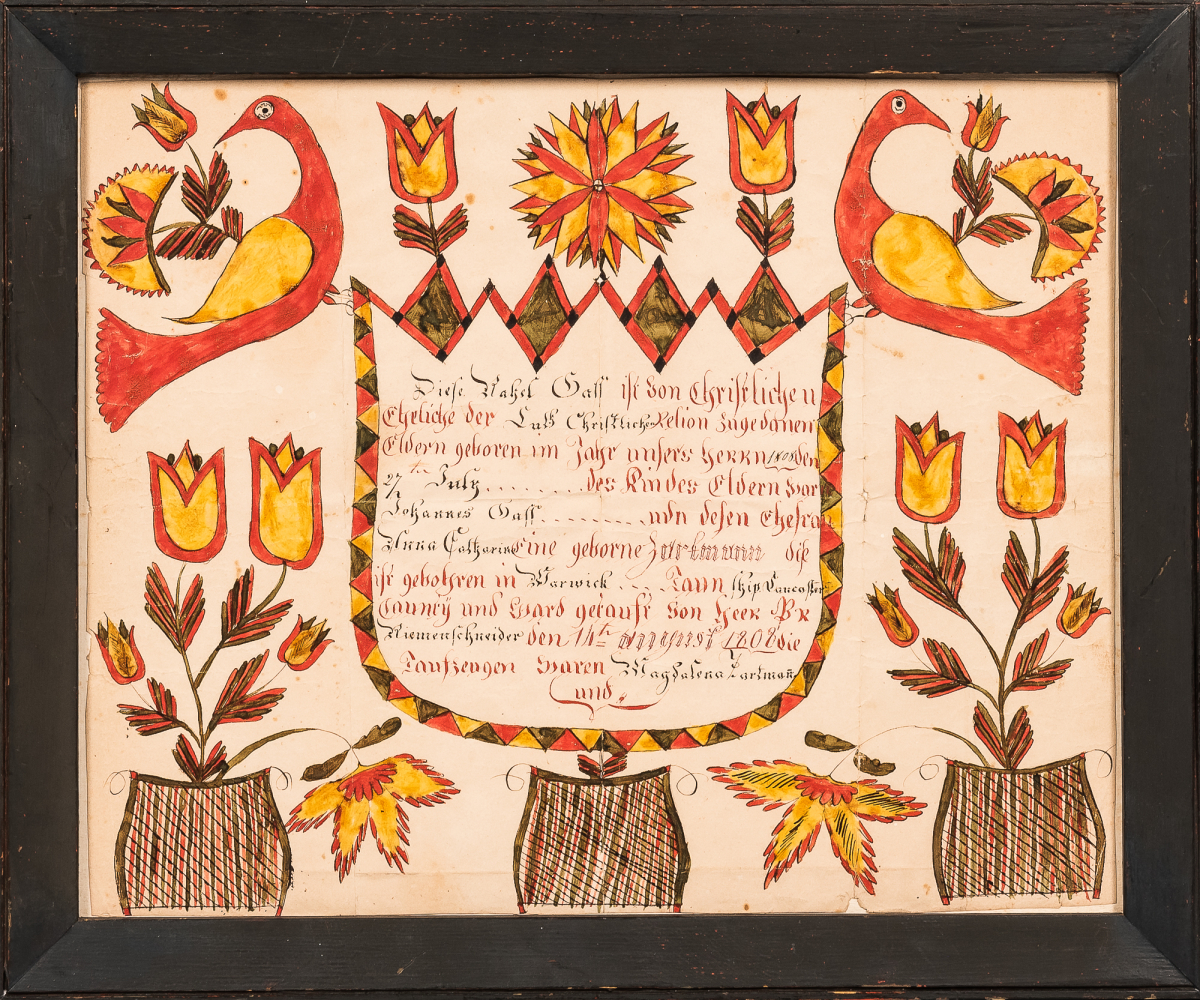 Diese Rahel Gass ist von Christlichen
Eheliche der Luth Christliche Relion zugedanen
Eldern geboren im Jahr unsers HERRN 1808 den
27th July . . . . . . . des Kindes Eldern War
Johannes Gass . . . . . . . . udn desen Ehefrau
Anna Catharina Eine geborne Zartmann die
ist gebohren in Warwick . . . Taun ship Lancaster
Caunty und Ward getauft von Heer Pr
Riemenschneider den 14th august 1808 die
Taufzeugen Waren Magdalena Zartmann
und